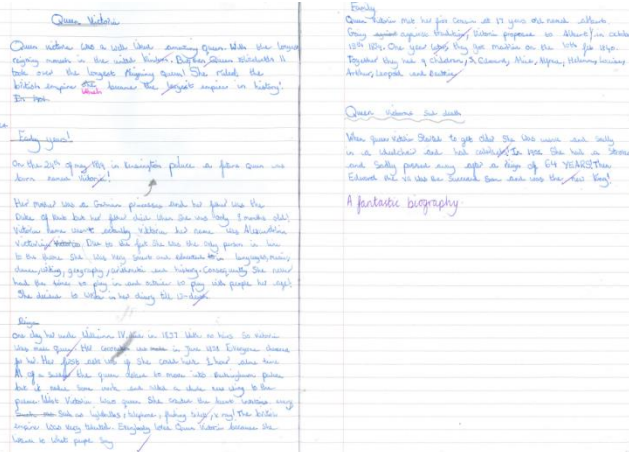 Queen Victoria
Queen victoria was a well liked amazing Queen. With the longest
reigning monarch in the united kindom. But then Queen Elizabeth II
took over the longest Reigning Queen! She ruled the
british empire which became the largest empire in history!
Early years!
On the 24th of may 1819 in kensington palace a future Queen was
born named Victoria!
Her mother was a German princess and her father was the
Duke of Kent but her father died when she was only 8 months old!
Victoria name wasn't actually victoria her name was Alexandrina
Victoria. Due to the fact she was the only person in line
to the throne she was very smart and educated in languages, music,
dance, writing, geography, arithmetic and history. Consequently she never
had the time to play in and outside or play with people her age!
She decided to write in her diary till death.
Reign
One day her uncle William IV died in 1837 with no heirs. So victoria
was made queen. Her coronation was made in June 1838 Everyone cheered
for her. Her first act was if she could have 1 hour alone time
the queen decided to move into Buckingham palace
but it needed some work and added a whole new wing to the
palace. When Victoria was queen she
such as lightbulbs, telephone, x ray! The british
empire was very wealthy. Everybody loved Queen Victoria because she
listened to what people say
Family
Queen Victoria met her first Cousin at 17 years old named Albert.
Going against tradition, Victoria proposed to Albert in october
15th 1839. One year later they got married on the 10th feb 1840.
Together they had 9 children,
Arthur, Leopold and Beatrice
Queen Victorias sad death
When queen victoria started to get old she was weak and sadly
in a wheelchair and had In she had a stroke
and sadly passed away after a reign of 64 YEARS! Then
Edward the VII was the Second Son and was the new King!
A fantastic biography.